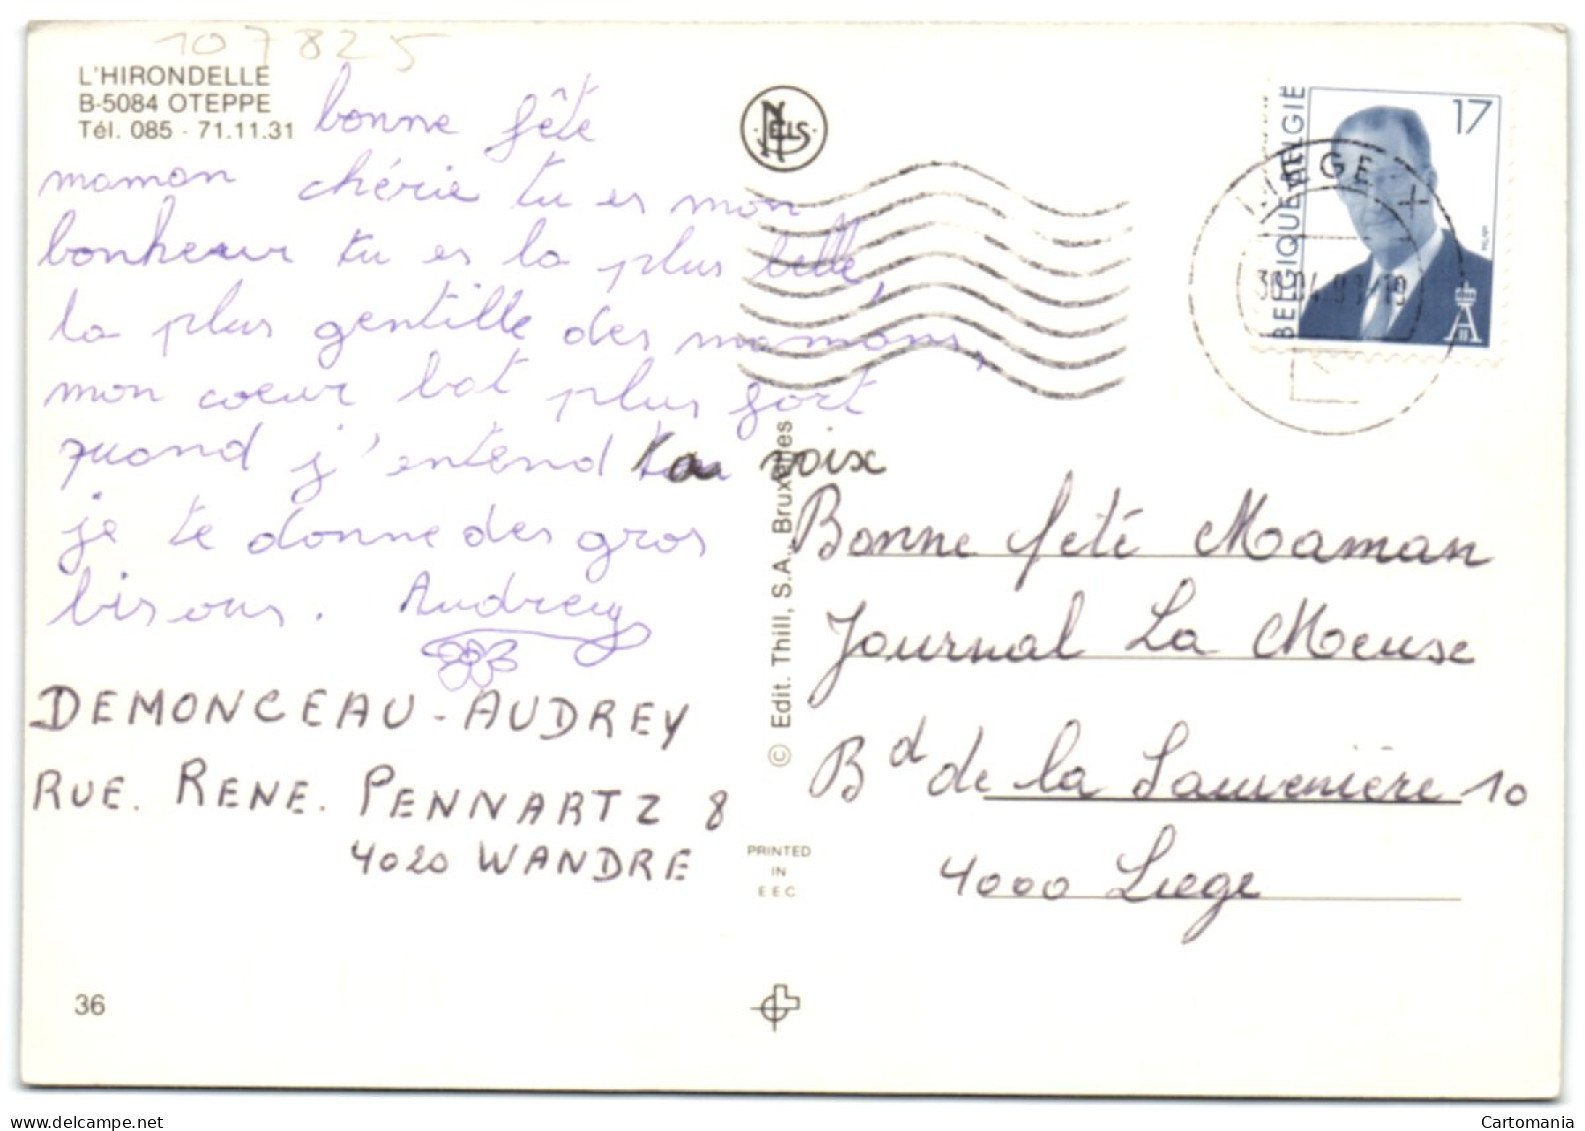 107825
L'HIRONDELLE
B-5084 OTEPPE
Tél. 085 - 71.11.31
bonne fête
maman chérie tu es mon
bonheur tu es la plus belle,
la plus gentille des mamans,
mon coeur bat plus fort
quand j'entend ta voix
je te donne des gros
bisous. Audrey
DEMONCEAU - AUDREY
RUE. RENE. PENNARTZ 8
4020 WANDRE
36
NELS
© Edit. Thill, S.A., Bruxelles
PRINTED
IN
EEC
BELGIQUE BELGIE
17
LIEGE X
Bonne fété Maman
Journal La Meuse
Bd de la Sauvenière 10
4000 Liege
Cartomania